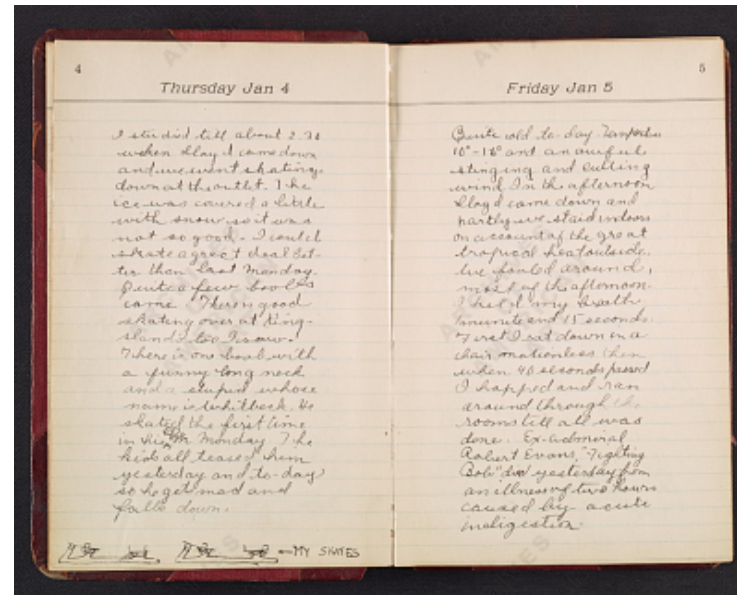 4
Thursday Jan 4
I studied till about 2.30
when Lloyd came down
and we went skating
down at the outlet. The
ice was covered a little
with snow so it was
not so good. I could
skate a great deal bet-
ter than last Monday.
Quite a few
came. Theres good
skating over at King-
sland's too I
There is one boob with
a funny long neck
and a stupid whose
name is Whitbeck. He
skated the first time
in his life Monday. The
kids all teased him
yesterday and to-day
so he gets mad and
falls down.
MY SKATES
5
Friday Jan 5
Quite cold to-day
10°-16° and an awful
stinging and cutting
wind. In the afternoon
Lloyd came down and
partly we staid indoors
on account of the great
tropical heat outside.
We fooled around,
most of the afternoon.
I held my breath
1 munite and 15 seconds.
First I sat down in a
chair motionless then
when 40 seconds passed
I happed and ran
around through the
rooms till all was
done. Ex-admiral
Robert Evans, "Fighting
Bob" died yesterday from
an illness of two hours
caused by acute
indigestion.